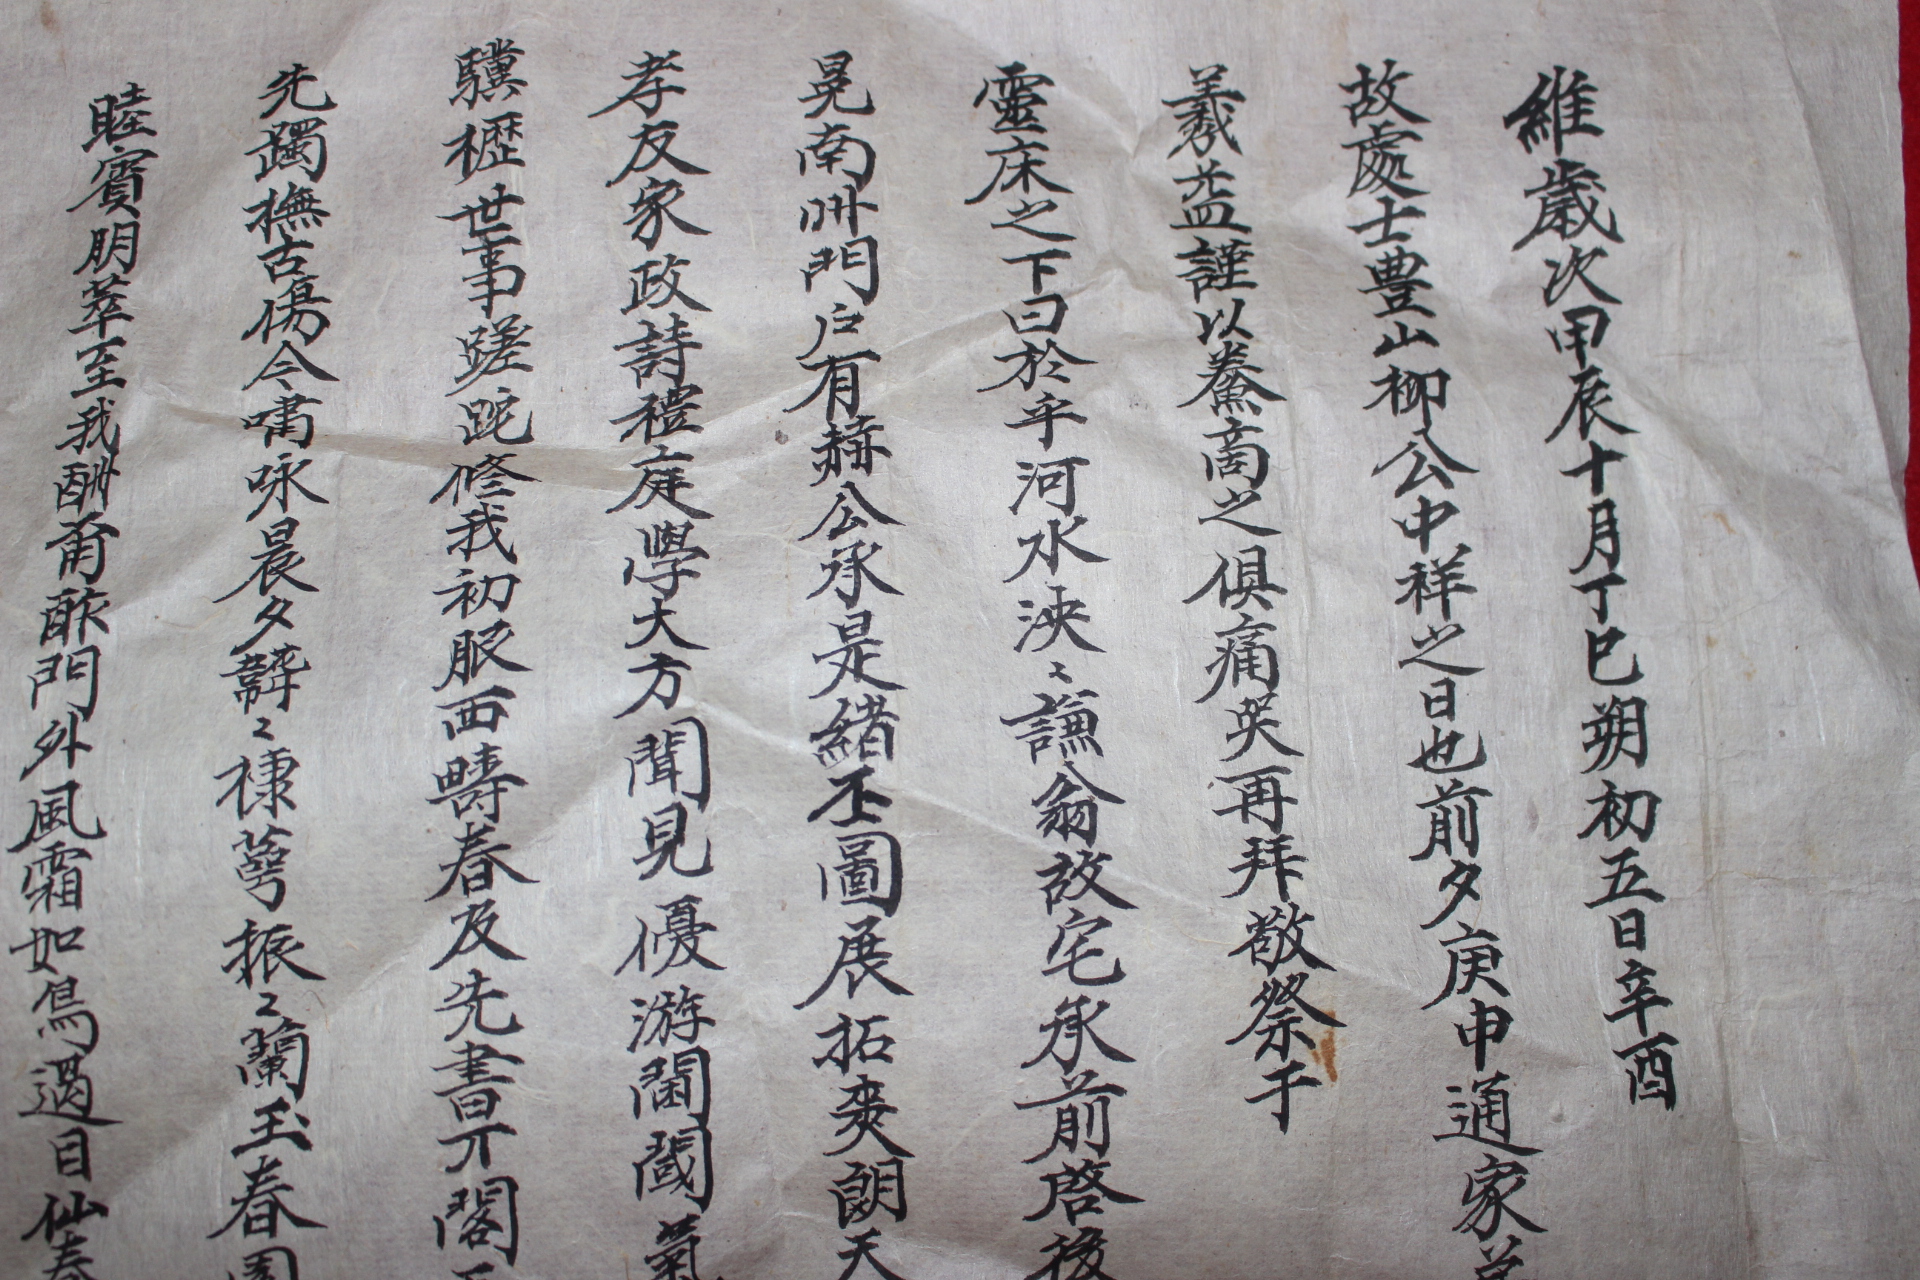 維歲次甲辰十月丁巳朔初五日辛酉
故處士豊山柳公中祥之日也前夕庚申通家
羲益謹以鱉啇之俱痛哭再拜敬祭于
靈床之下曰於乎河水泱〻謙翁故宅承前啓後
晃南州門戶有赫公承是緒丕圖展拓爽朗天
孝友家政詩禮庭學大方聞見優游閫閾氣
驥櫪世事蹉跎修我初服西疇春及先書丌閣
先躅撫古傷今嘯咏晨夕韡〻棣萼振〻蘭玉春園
睦賓朋萃至我酬甭酢門外風霜如鳥過目仙春